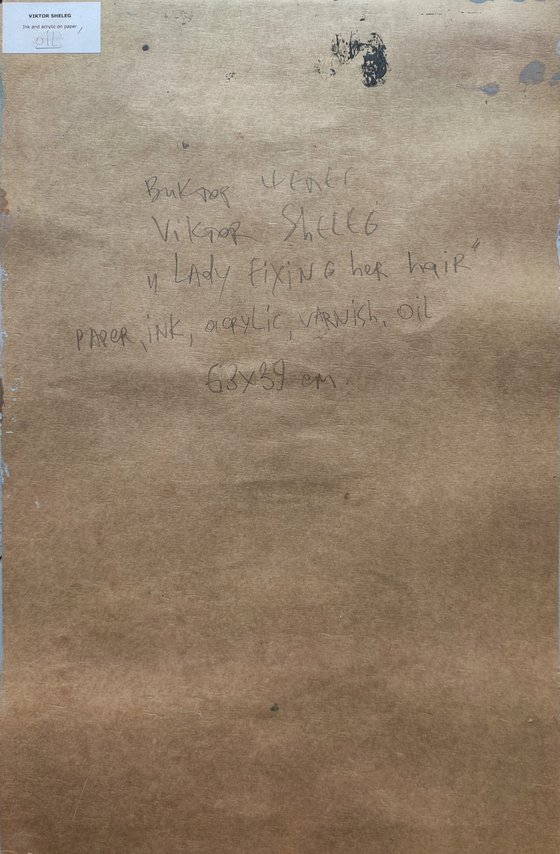 VIKTOR SHELEG
Ink and acrylic on paper,
OIL
Виктор Шелег
Viktor SHELEG
„LADY FIXING her haiR"
PAPER, iNK, acryLic, VARNish, OiL
63x39 cm